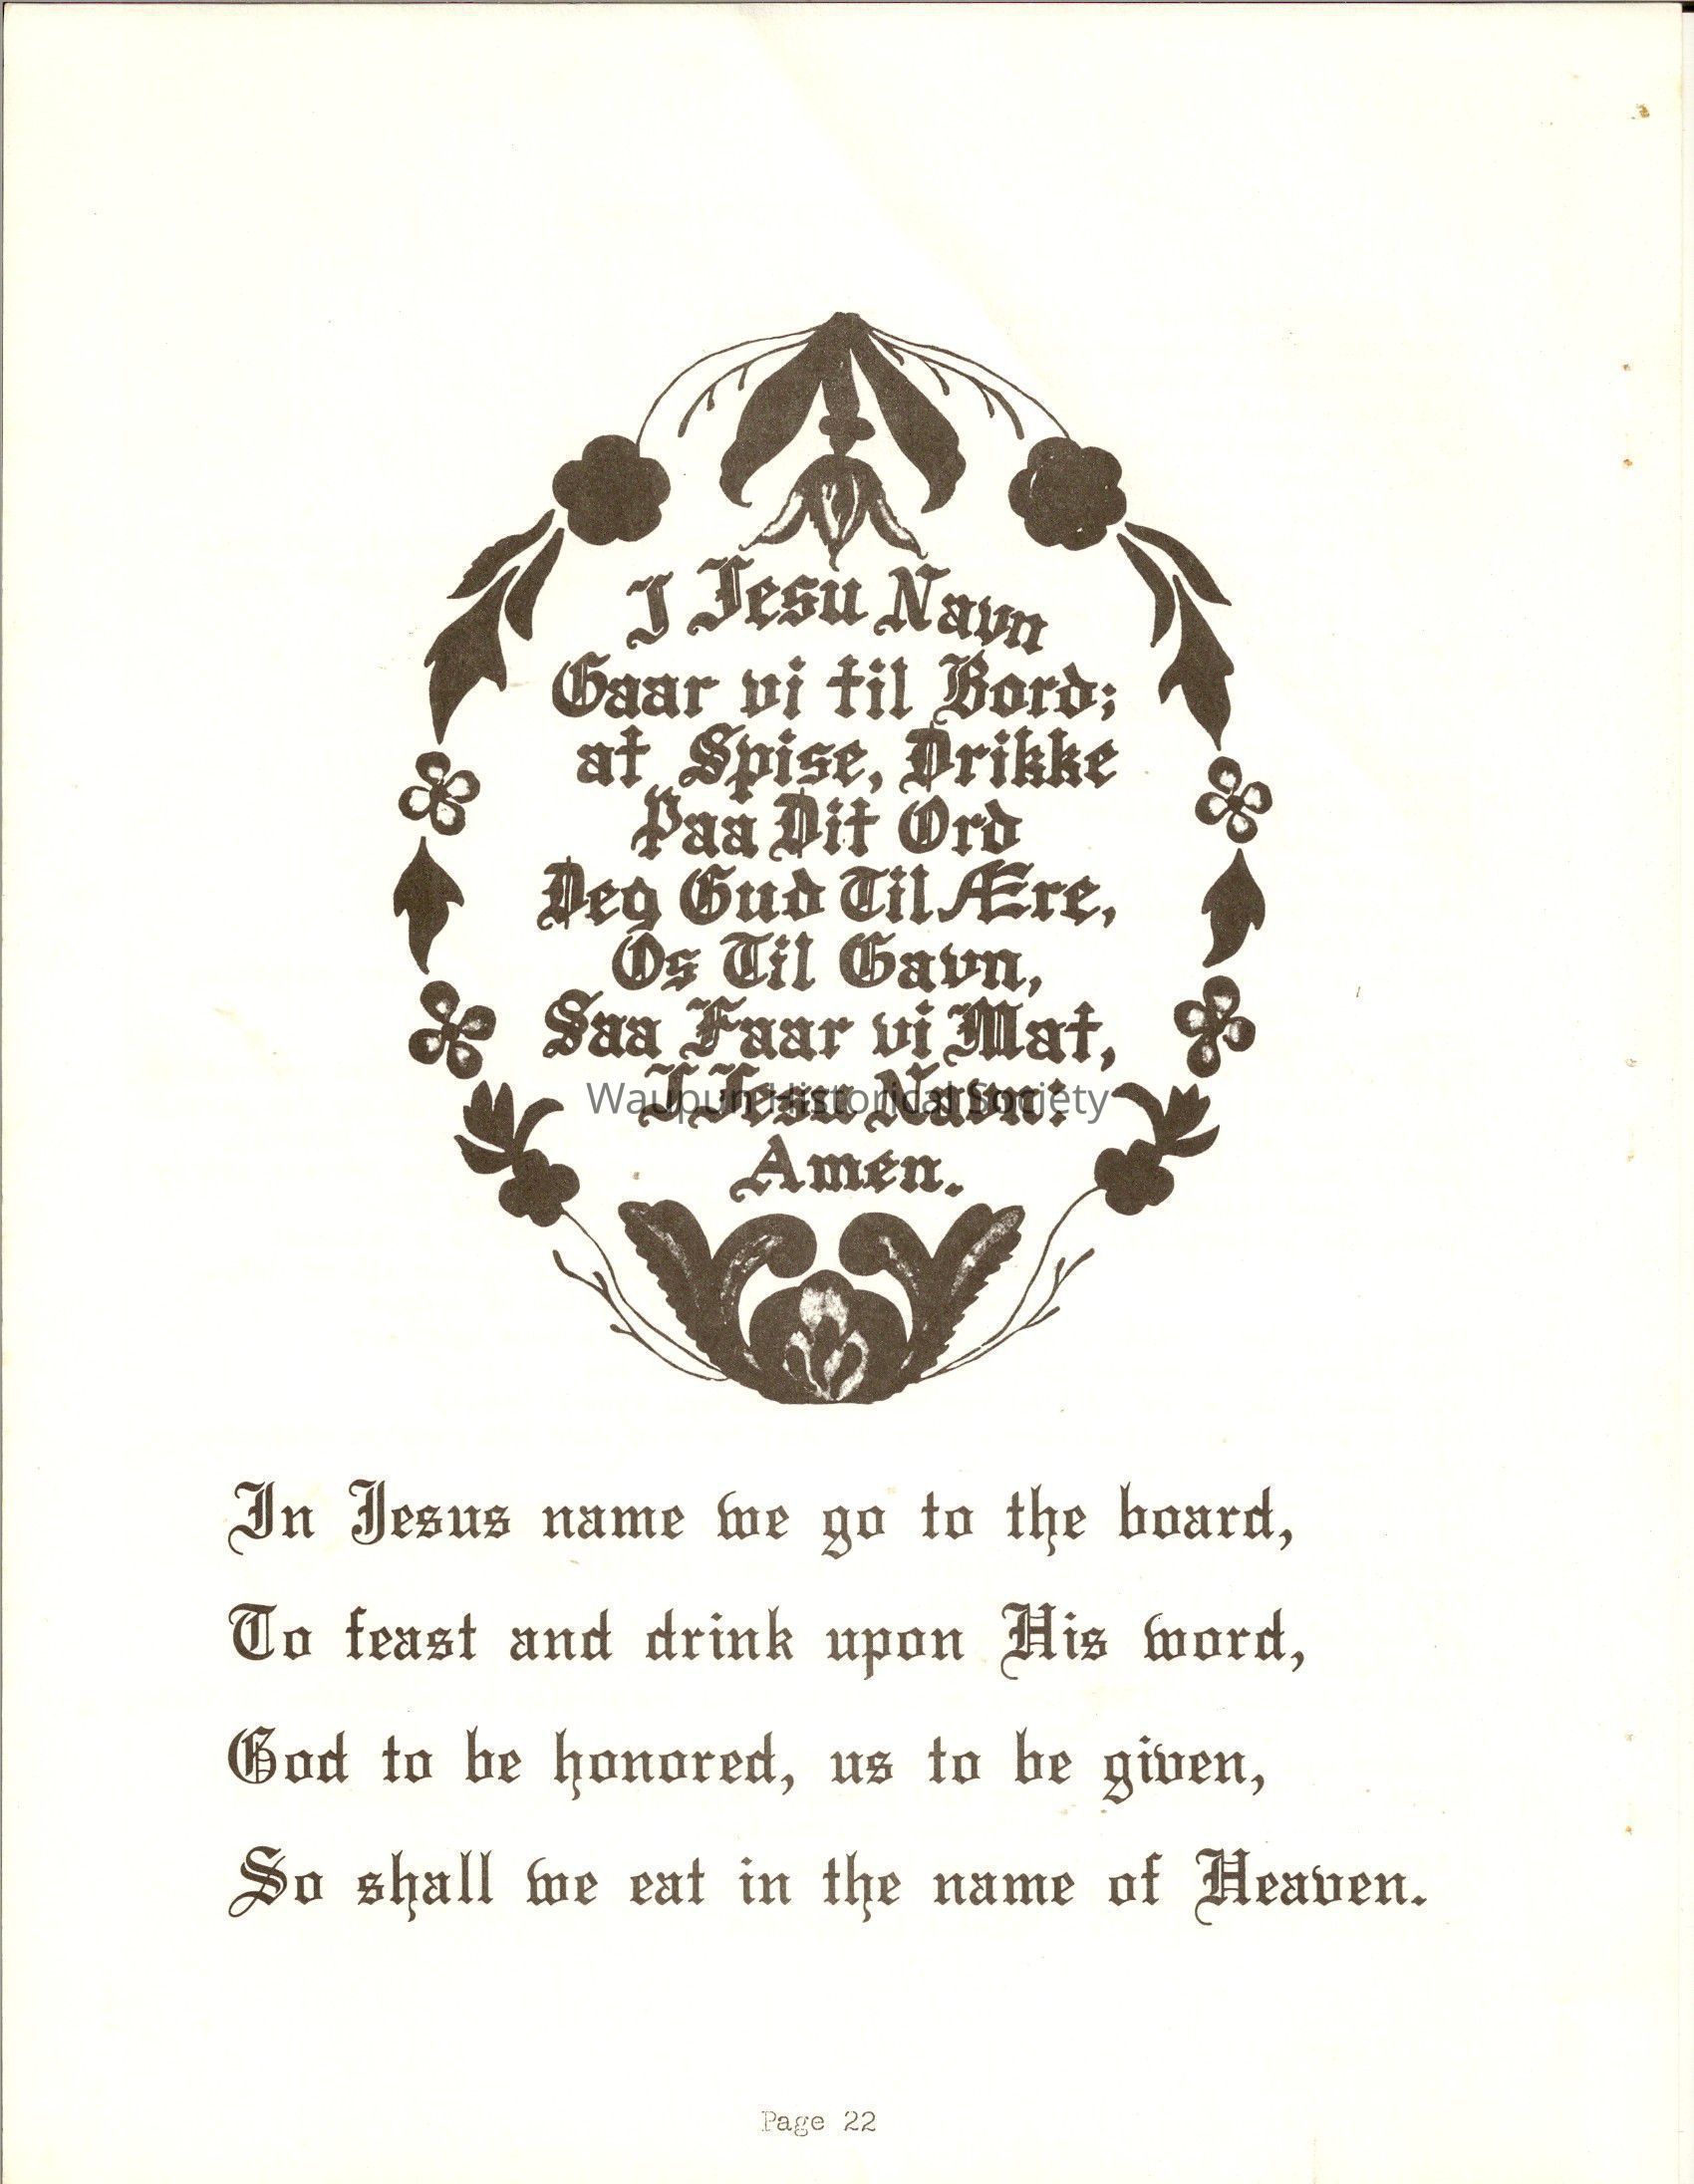 I Jesu Navn
Gaar vi til Bord;
at Spise, Drikke
Paa Dit Ord
Deg Gud Til Ære,
Os Til Gavn,
Saa Faar vi Mat,
I Jesu Navn:
Waupun Historical Society
Amen.
In Jesus name we go to the board,
To feast and drink upon His word,
God to be honored, us to be given,
So shall we eat in the name of Heaven.
Page 22